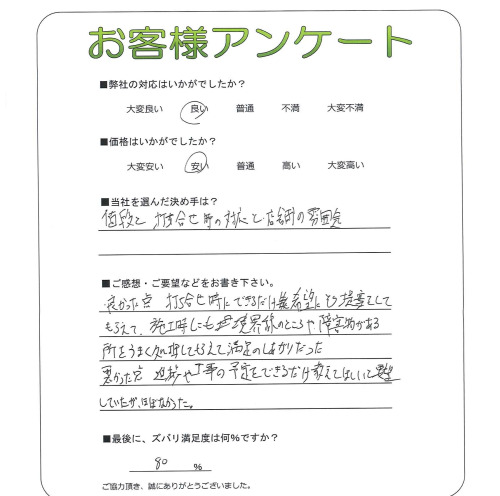 お客様アンケート
■弊社の対応はいかがでしたか？
大変良い　良い　普通　不満　大変不満
■価格はいかがでしたか？
大変安い　安い　普通　高い　大変高い
■当社を選んだ決め手は？
価段と 打ち合せ時の対応と、店舗の雰囲気
■ご感想・ご要望などをお書き下さい。
良かった点 打ち合せ時にできるだけ希望にそう提案をして
もらえて、施工時にも境界線のところや障害物がある
所をうまく処理してもらえて満足のしあがりだった
悪かった点 進捗や工事の予定をできるだけ教えてほしいと要望
していたが、ほぼなかった。
■最後に、ズバリ満足度は何%ですか？
80 %
ご協力頂き、誠にありがとうございました。